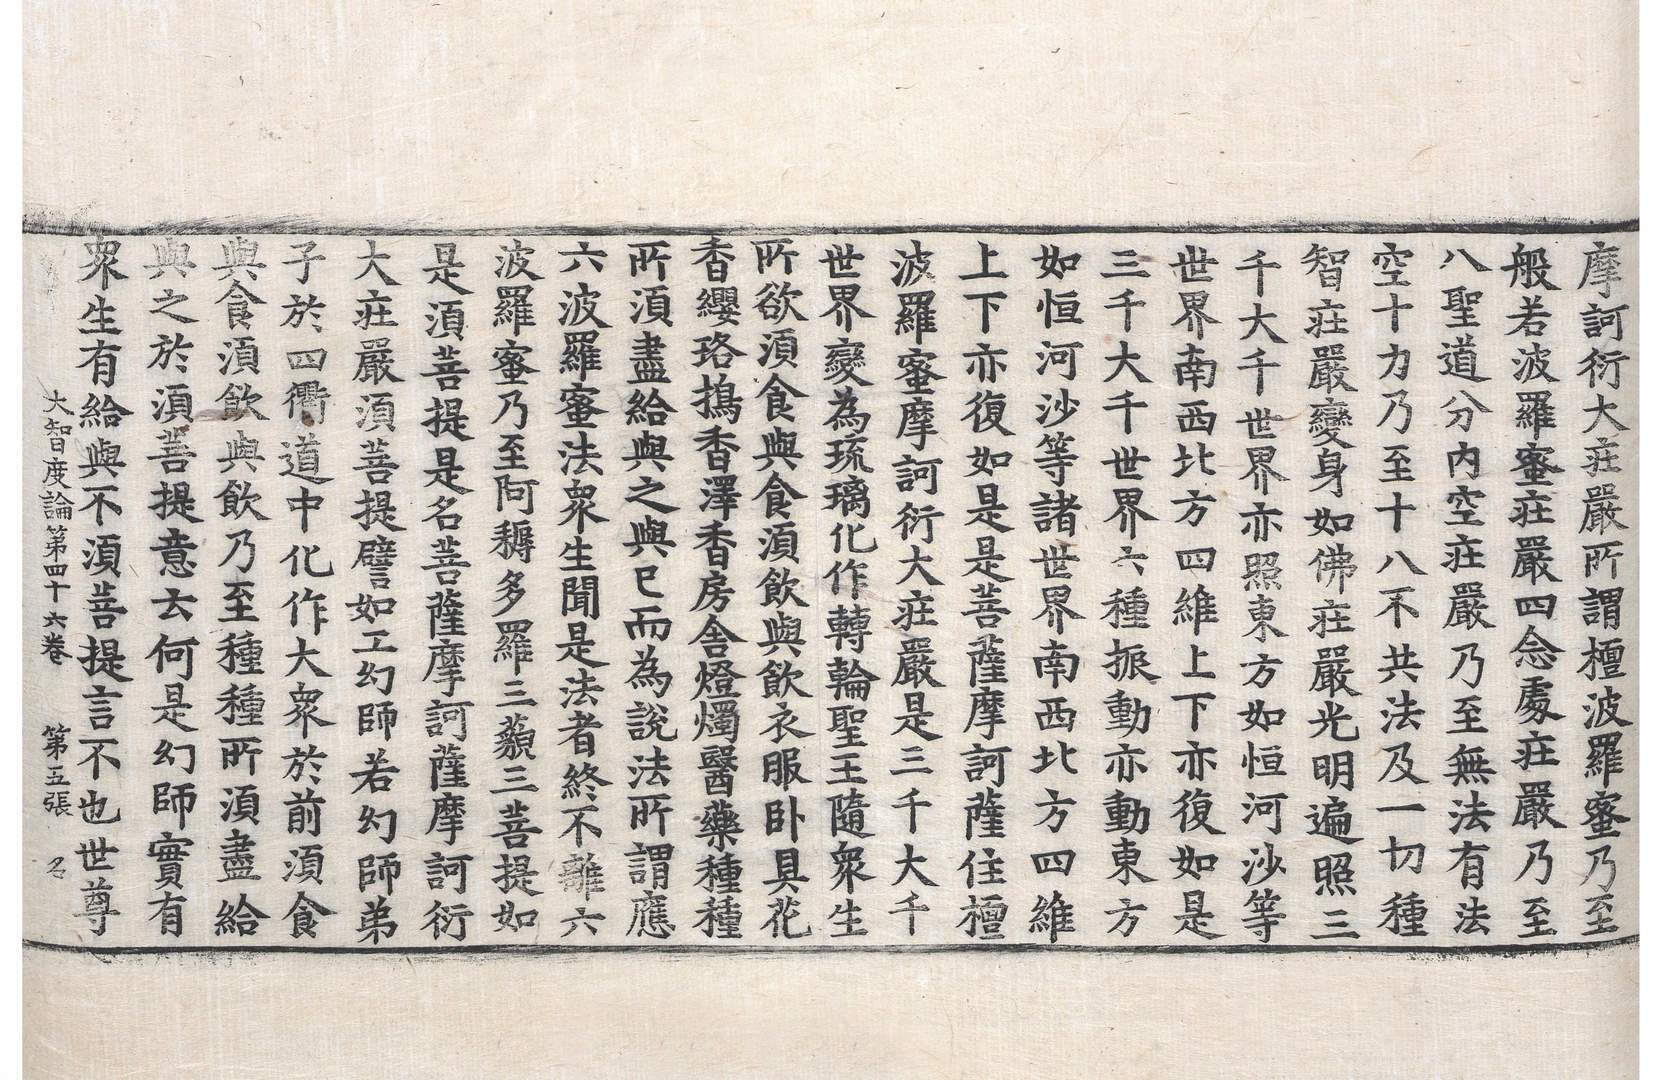 摩訶衍大莊嚴所謂檀波羅蜜乃至
般若波羅蜜莊嚴四念處莊嚴乃至
八聖道分內空莊嚴乃至無法有法
空十力乃至十八不共法及一切種
智莊嚴變身如佛莊嚴光明遍照三
千大千世界亦照東方如恒河沙等
世界南西北方四維上下亦復如是
三千大千世界六種振動亦動東方
如恒河沙等諸世界南西北方四維
上下亦復如是是菩薩摩訶薩住檀
波羅蜜摩訶衍大莊嚴是三千大千
世界變為琉璃化作轉輪聖王隨衆生
所欲須食與食須飲與飲衣服卧具花
香纓珞擣香香澤香房舍燈燭醫藥種種
所須盡給與之與已而為說法所謂應
六波羅蜜法衆生聞是法者終不離六
波羅蜜乃至阿耨多羅三藐三菩提如
是須菩提是名菩薩摩訶薩摩訶衍
大莊嚴須菩提譬如工幻師若幻師弟
子於四衢道中化作大衆於前須食
與食須飲與飲乃至種種所須盡給
與之於須菩提意云何是幻師實有
衆生有給與不須菩提言不也世尊
大智度論第四十六卷 第五張 名